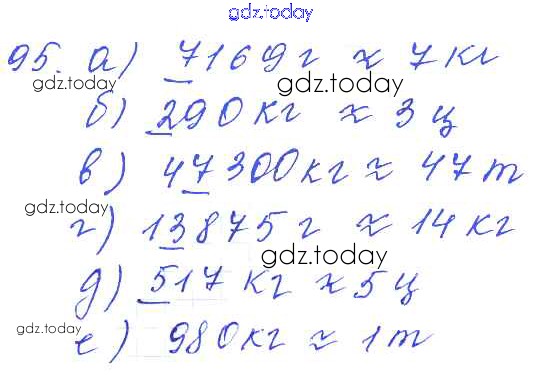 gdz.today
95. а) 7169 г ≈ 7 кг
gdz.today
gdz.today
б) 290 кг ≈ 3 ц
в) 47300 кг ≈ 47 т
gdz.today
г) 13875 г ≈ 14 кг
gdz.today
д) 517 кг ≈ 5 ц
gdz.today
е) 980 кг ≈ 1 т